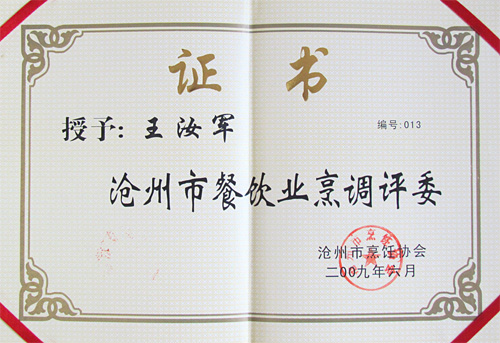 证书
授予：王汝军
编号：013
沧州市餐饮业烹调评委
沧州市烹饪协会
二00九年六月